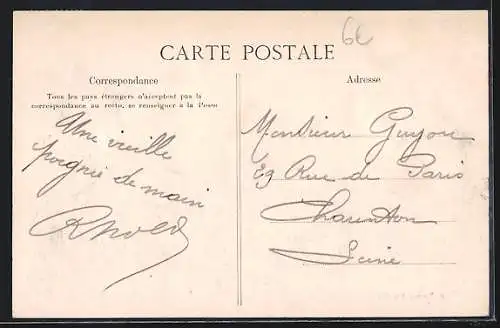 6c
CARTE POSTALE
Correspondance
Tous les pays étrangers n'acceptent pas la
correspondance au recto, se renseigner à la Poste
Une vieille
poignée de main
Adresse
Monsieur Guyon
29 Rue de Paris
Charenton
Seine